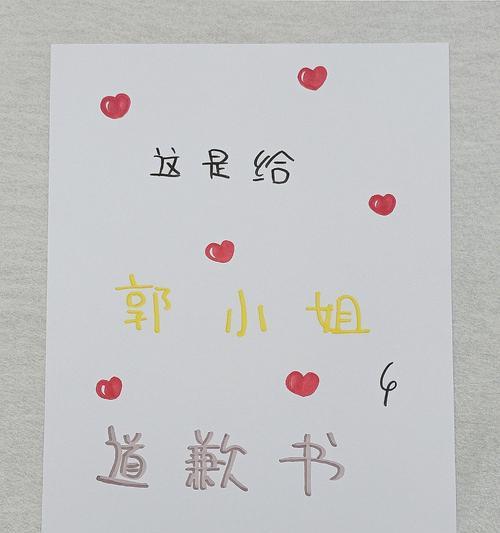 这是给
郭小姐
的
道歉书